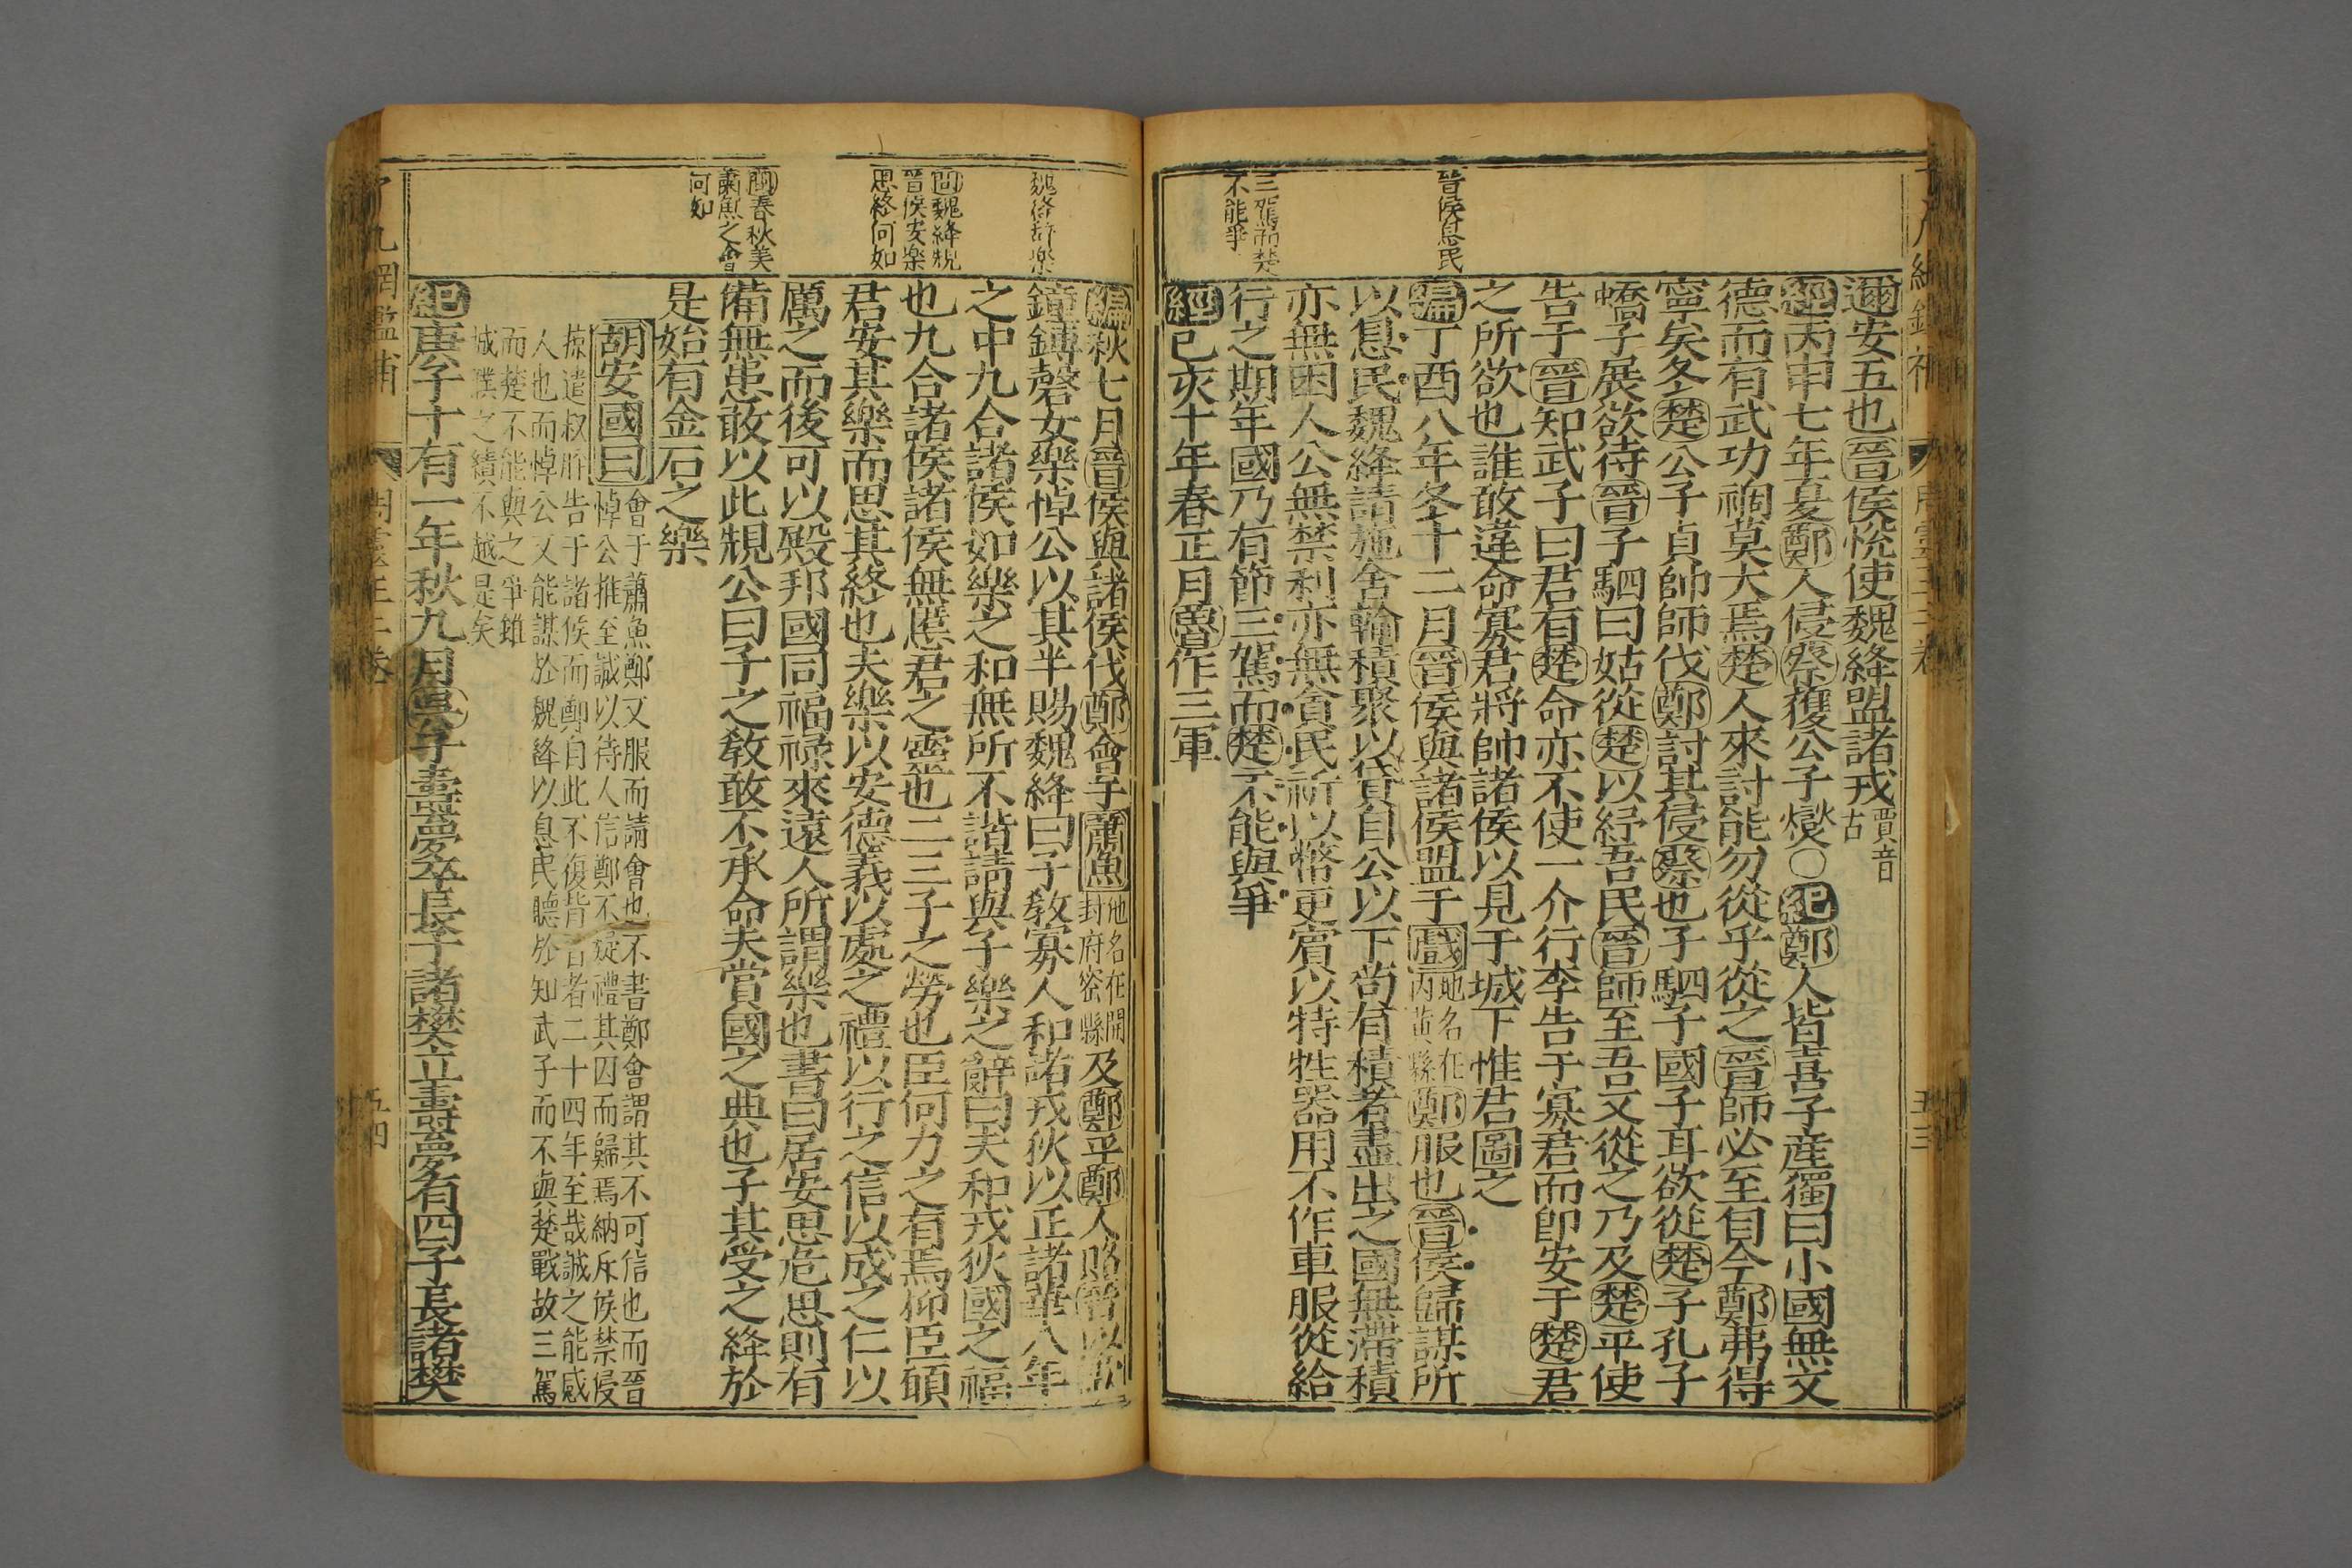 晉侯息民
三駕而楚
不能爭
邇安五也晉侯悅使魏絳盟諸戎賈音古
經丙申七年夏鄭人侵蔡獲公子燮○紀鄭人皆喜子産獨曰小國無文
德而有武功禍莫大焉楚人來討能勿從乎從之晉師必至自今鄭弗得
寧矣冬楚公子貞帥師伐鄭討其侵蔡也子駟子國子耳欲從楚子孔子
蟜子展欲待晉子駟曰姑從楚以紓吾民晉師至吾又從之乃及楚平使
告于晉知武子曰君有楚命亦不使一介行李告于寡君而即安于楚君
之所欲也誰敢違命寡君將帥諸侯以見于城下惟君圖之
編丁酉八年冬十二月晉侯與諸侯盟于戲地名在內黃縣鄭服也晉侯歸謀所
以息民魏絳請施舍輸積聚以貸自公以下苟有積者盡出之國無滯積
亦無困人公無禁利亦無貪民祈以幣更賓以特牲器用不作車服從給
行之期年國乃有節三駕而楚不能與爭
經己亥十年春正月魯作三軍
五十三
魏絳辭樂
問魏絳規
晉侯安樂
思終何如
問春秋美
蕭魚之會
何如
編秋七月晉侯與諸侯伐鄭會于蕭魚地名在開封府密縣及鄭平鄭人賂晉以歌
鐘鎛磬女樂悼公以其半賜魏絳曰子教寡人和諸戎狄以正諸華八年
之中九合諸侯如樂之和無所不諧請與子樂之辭曰夫和戎狄國之福
也九合諸侯諸侯無慝君之靈也二三子之勞也臣何力之有焉仰臣願
君安其樂而思其終也夫樂以安德義以處之禮以行之信以成之仁以
厲之而後可以殿邦國同福祿來遠人所謂樂也書曰居安思危思則有
備無患敢以此規公曰子之教敢不承命夫賞國之典也子其受之絳於
是始有金石之樂
胡安國曰會于蕭魚鄭又服而請會也不書鄭會謂其不可信也而晉
悼公推至誠以待人信鄭不疑禮其囚而歸焉納斥候禁侵
掠遣叔肸告于諸侯而鄭自此不復背晉者二十四年至哉誠之能感
人也而悼公又能謀於魏絳以息民聽於知武子而不與楚戰故三駕
而楚不能與之爭雖
城濮之績不越是矣
紀庚子十有一年秋九月吳子壽夢卒長子諸樊立壽夢有四子長諸樊
了凡綱鑑補
周靈王二卷
五十四